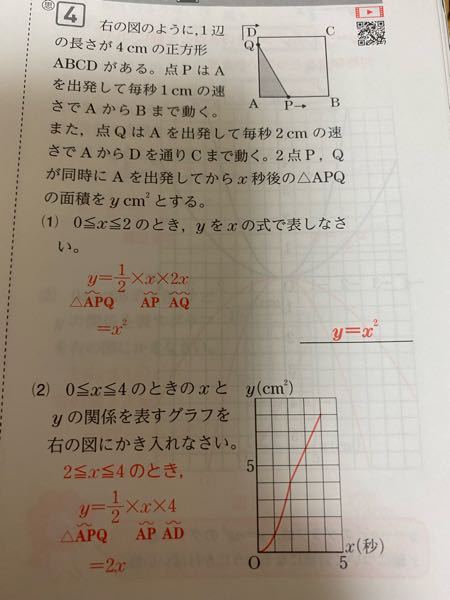 思
4
右の図のように,1辺
の長さが4cmの正方形
ABCDがある。点PはA
を出発して毎秒1cmの速
さでAからBまで動く。
また,点QはAを出発して毎秒2cmの速
さでAからDを通りCまで動く。2点P,Q
が同時にAを出発してからx秒後の△APQ
の面積をy cm²とする。
D
C
Q
A
P→
B
(1) 0≦x≦2のとき,yをxの式で表しなさ
い。
y=1/2×x×2x
△APQ AP AQ
=x²
y=x²
(2) 0≦x≦4のときのxと
yの関係を表すグラフを
右の図にかき入れなさい。
2≦x≦4のとき,
y=1/2×x×4
△APQ AP AD
=2x
y(cm²)
5
O
5
x(秒)